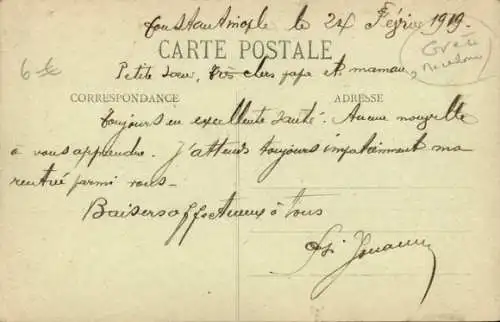 Constantinople le 24 Février 1919.
CARTE POSTALE
Grèce
6 €
Petite sœur, très chers papa et maman,
CORRESPONDANCE
ADRESSE
Toujours en excellente santé. Aucune nouvelle
a vous apprendre. J'attends toujours impatiemment ma
rentrée parmi vous-
Baisers affectueux à tous